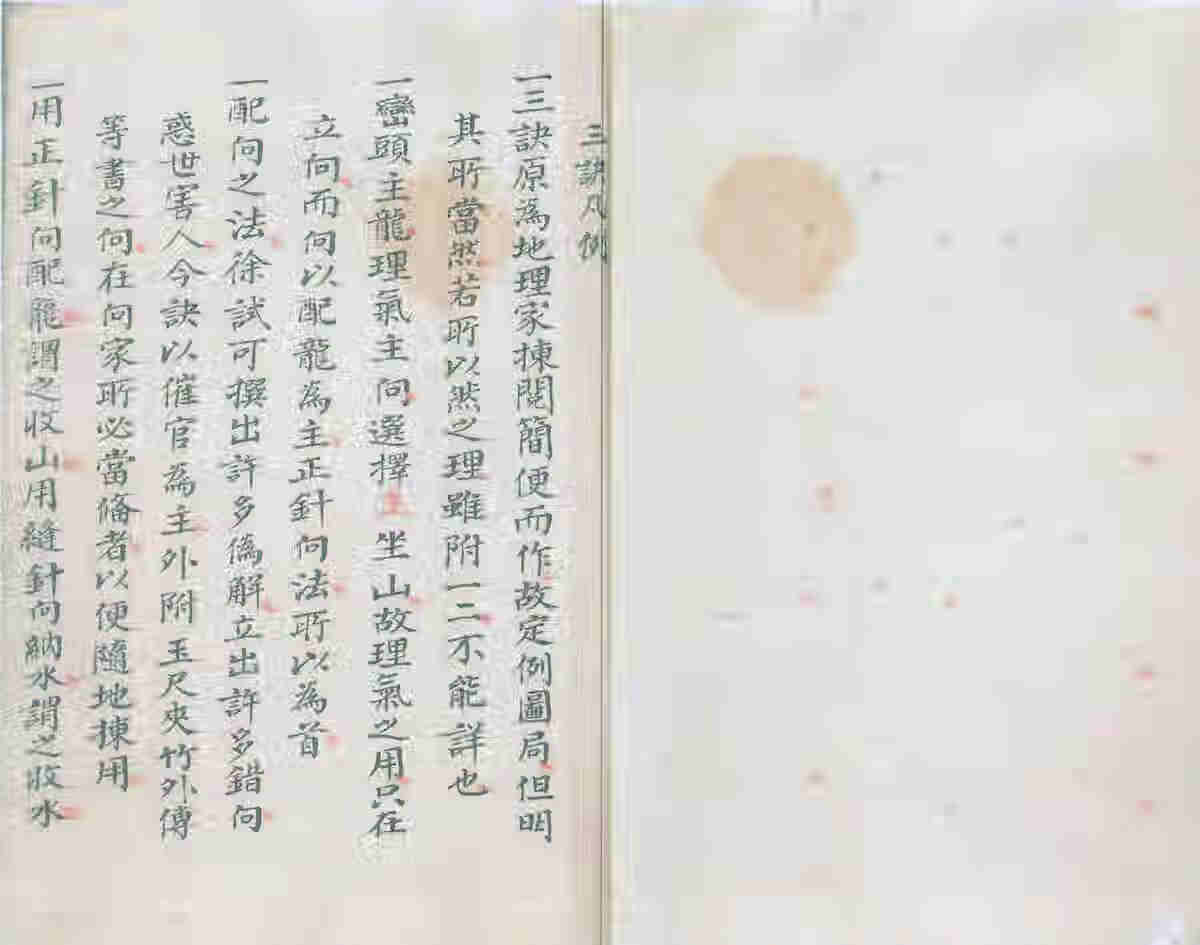 三訣凡例
一三訣原為地理家揀閱簡便而作故定例圖局但明
其所當然若所以然之理雖附一二不能詳也
一巒頭主龍理氣主向選擇主坐山故理氣之用只在
立向而向以配龍為主正針向法所以為首
一配向之法徐試可撰出許多偽解立出許多錯向
惑世害人今訣以催官為主外附玉尺夾竹外傳
等書之向在向家所必當俻者以便隨地揀用
一用正針向配龍謂之收山用縫針向納水謂之收水